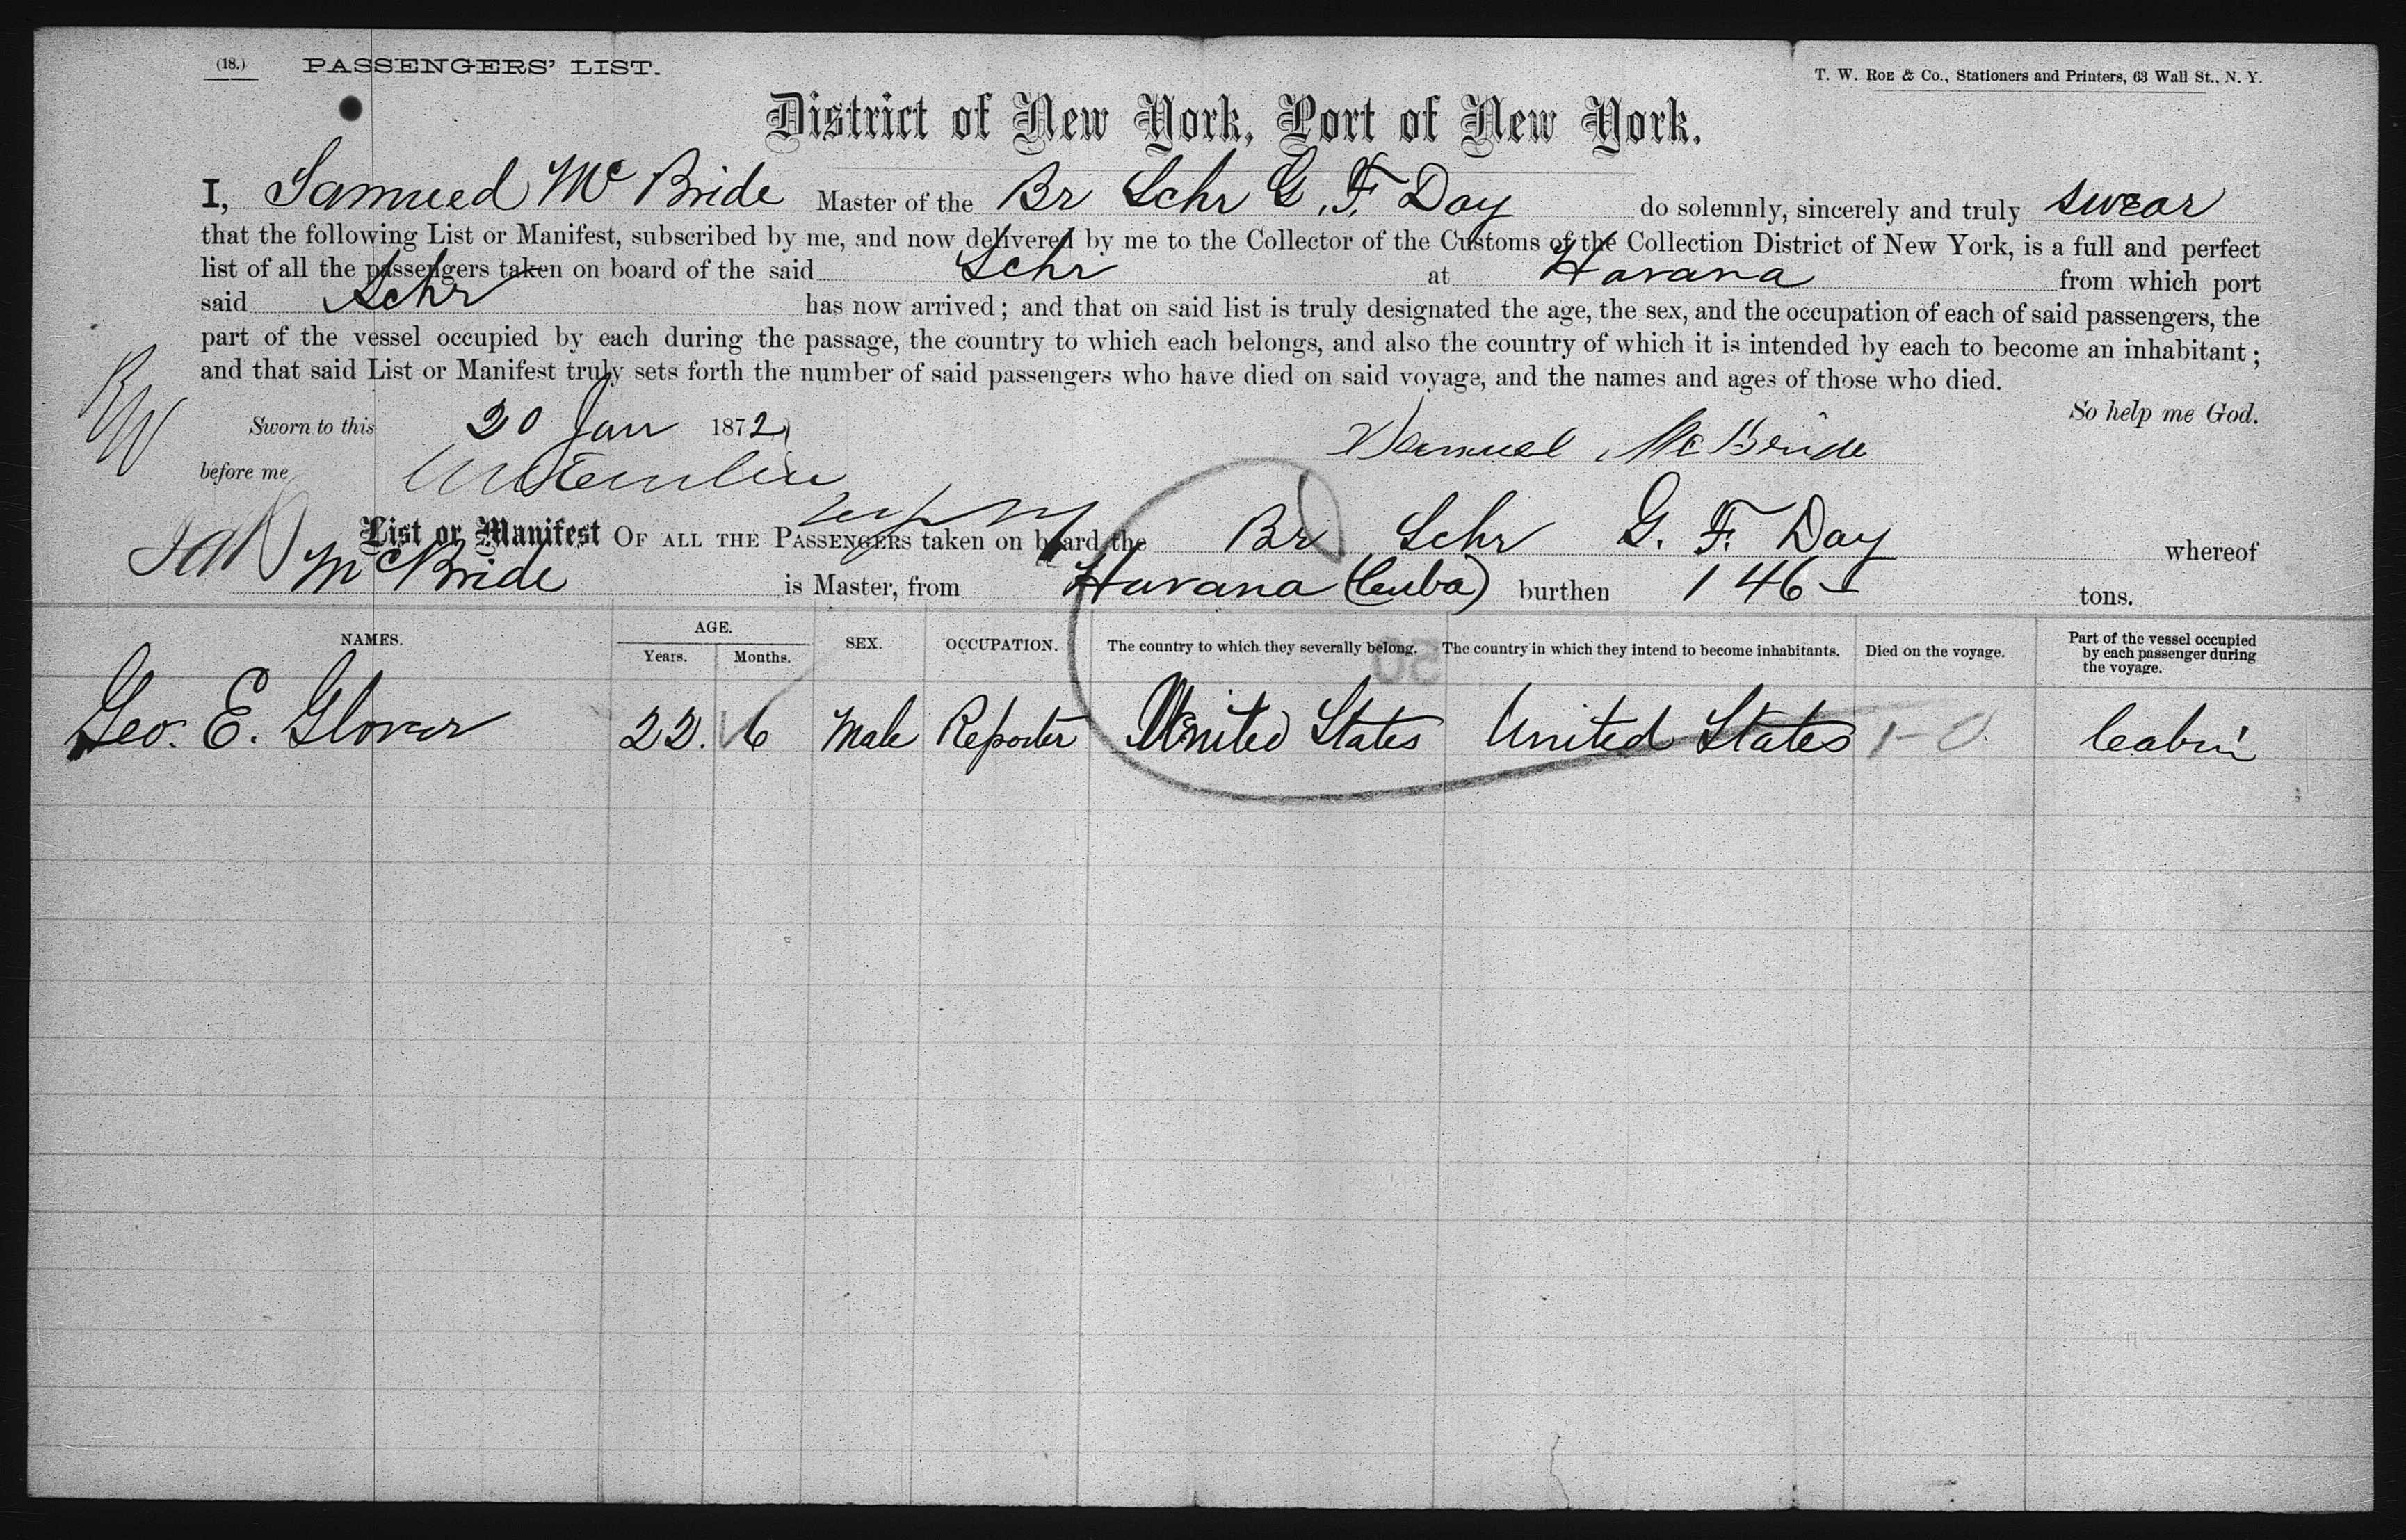 (18.) PASSENGERS' LIST.
T. W. ROE & Co., Stationers and Printers, 63 Wall St., N. Y.
District of New York, Port of New York.
I, Samued Mc Bride Master of the Br Schr G. F. Day do solemnly, sincerely and truly swear
that the following List or Manifest, subscribed by me, and now delivered by me to the Collector of the Customs of the Collection District of New York, is a full and perfect
list of all the passengers taken on board of the said Schr at Havana from which port
said Schr has now arrived; and that on said list is truly designated the age, the sex, and the occupation of each of said passengers, the
part of the vessel occupied by each during the passage, the country to which each belongs, and also the country of which it is intended by each to become an inhabitant;
and that said List or Manifest truly sets forth the number of said passengers who have died on said voyage, and the names and ages of those who died.
So help me God.
Sworn to this 20 Jan 1872
Samuel McBride
before me
List or Manifest OF ALL THE PASSENGERS taken on board the Br Schr G. F. Day whereof
McBride is Master, from Havana (Cuba) burthen 146 tons.
NAMES. AGE. Years. Months. SEX. OCCUPATION. The country to which they severally belong. The country in which they intend to become inhabitants. Died on the voyage. Part of the vessel occupied by each passenger during the voyage.
Geo. E. Glover 22. 6 Male Reporter United States United States 1-0 Cabin